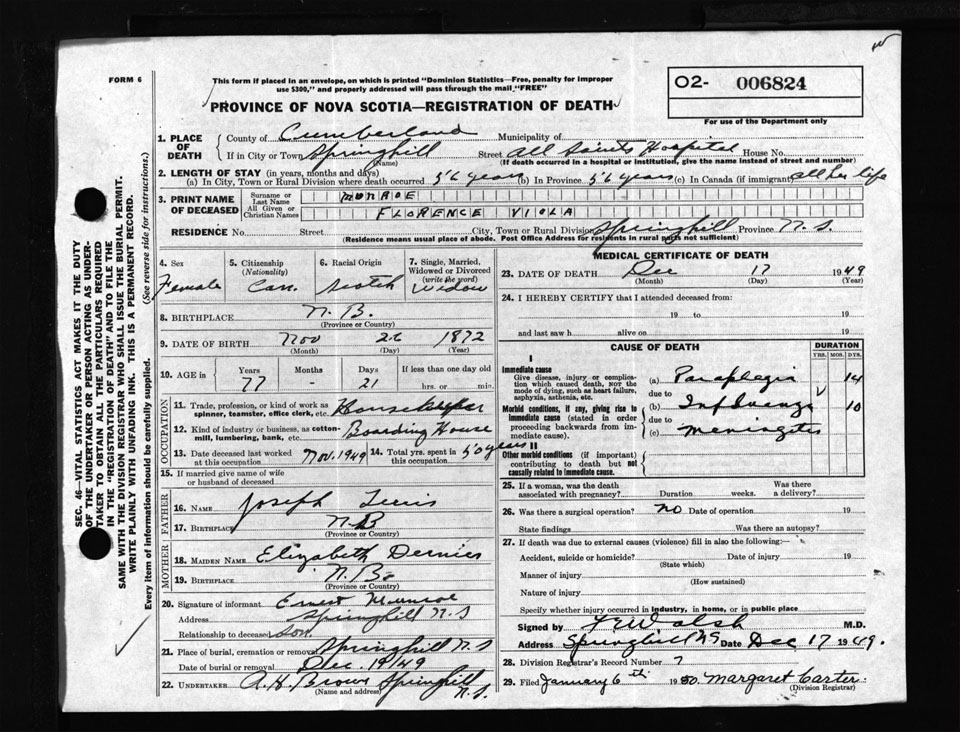 FORM 6
This form if placed in an envelope, on which is printed "Dominion Statistics—Free, penalty for improper
use $300," and properly addressed will pass through the mail "FREE"
PROVINCE OF NOVA SCOTIA—REGISTRATION OF DEATH
O2- 006824
For use of the Department only
SEC. 46—VITAL STATISTICS ACT MAKES IT THE DUTY
OF THE UNDERTAKER OR PERSON ACTING AS UNDER-
TAKER TO OBTAIN ALL THE PARTICULARS REQUIRED
IN THE "REGISTRATION OF DEATH" AND TO FILE THE
SAME WITH THE DIVISION REGISTRAR WHO SHALL ISSUE THE BURIAL PERMIT.
WRITE PLAINLY WITH UNFADING INK. THIS IS A PERMANENT RECORD.
Every item of information should be carefully supplied. (See reverse side for instructions.)
1. PLACE OF DEATH
County of Cumberland Municipality of
If in City or Town Springhill Street All Saints Hospital House No.
(Name) (If death occurred in a hospital or institution, give the name instead of street and number)
2. LENGTH OF STAY (in years, months and days)
(a) In City, Town or Rural Division where death occurred 56 years (b) In Province 56 years (c) In Canada (if immigrant) all her life
3. PRINT NAME OF DECEASED
Surname or Last Name MONROE
All Given or Christian Names FLORENCE VIOLA
RESIDENCE No. Street City, Town or Rural Division Springhill Province N.S.
(Residence means usual place of abode. Post Office Address for residents in rural parts not sufficient)
4. Sex Female
5. Citizenship (Nationality) Can.
6. Racial Origin Scotch
7. Single, Married, Widowed or Divorced (write the word) Widow
8. BIRTHPLACE N.B.
(Province or Country)
9. DATE OF BIRTH Nov 26 1872
(Month) (Day) (Year)
10. AGE in Years Months Days If less than one day old
77 - 21 hrs. or min.
OCCUPATION
11. Trade, profession, or kind of work as spinner, teamster, office clerk, etc. Housekeeper
12. Kind of industry or business, as cotton-mill, lumbering, bank, etc. Boarding House
13. Date deceased last worked at this occupation Nov. 1949 14. Total yrs. spent in this occupation 50 years
15. If married give name of wife or husband of deceased
FATHER
16. NAME Joseph
17. BIRTHPLACE N.B
(Province or Country)
MOTHER
18. MAIDEN NAME Elizabeth
19. BIRTHPLACE N.B.
(Province or Country)
20. Signature of informant Ernest Munroe
Address Springhill N.S
Relationship to deceased Son.
21. Place of burial, cremation or removal Springhill N.S
Date of burial or removal Dec. 19/49
22. UNDERTAKER A.H. Brown Springhill N.S.
(Name and address)
MEDICAL CERTIFICATE OF DEATH
23. DATE OF DEATH Dec 17 1949
(Month) (Day) (Year)
24. I HEREBY CERTIFY that I attended deceased from:
19 to 19
and last saw h alive on 19
CAUSE OF DEATH DURATION
YRS. MOS. DYS.
I
Immediate cause
Give disease, injury or complication which caused death, NOT the mode of dying, such as heart failure, asphyxia, asthenia, etc.
(a) Paraplegia 14
due to
Morbid conditions, if any, giving rise to immediate cause (stated in order proceeding backwards from immediate cause).
(b) Influenza 10
due to
(c) Meningitis
II
Other morbid conditions (if important) contributing to death but not causally related to immediate cause.
25. If a woman, was the death associated with pregnancy? Duration weeks. Was there a delivery?
26. Was there a surgical operation? no Date of operation 19
State findings Was there an autopsy?
27. If death was due to external causes (violence) fill in also the following:—
Accident, suicide or homicide? Date of injury 19
(State which)
Manner of injury
(How sustained)
Nature of injury
Specify whether injury occurred in industry, in home, or in public place
Signed by Walsh M.D.
Address Springhill NS Date Dec 17 1949.
28. Division Registrar's Record Number 7
29. Filed January 6th 1950. Margaret Carter.
(Division Registrar)